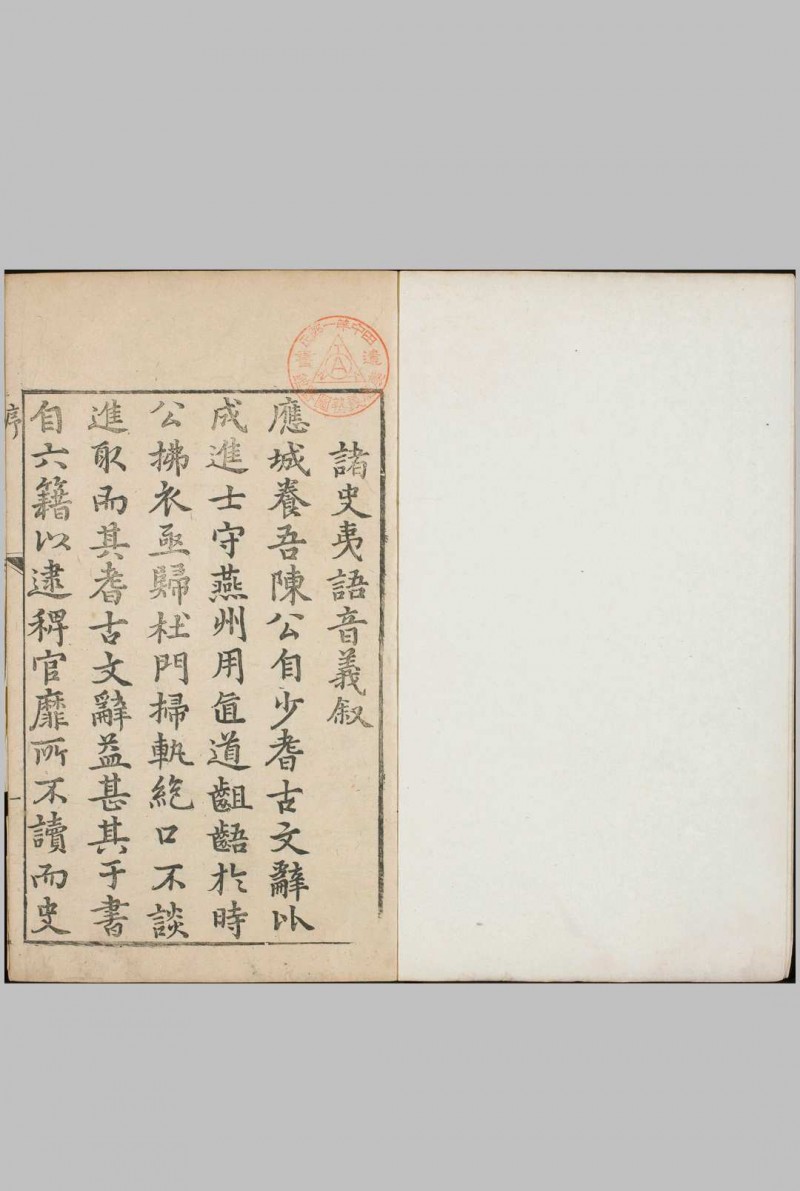 諸史夷語音義叙
應城養吾陳公自少耆古文辭以
成進士守燕州用直道齟齬於時
公拂衣亟歸杜門掃軌絶口不談
進取而其耆古文辭益甚其于書
自六籍以逮稗官靡所不讀而史
序
一